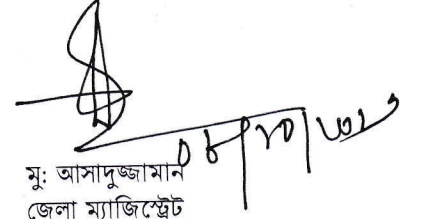 মু: আসাদুজ্জামান
জেলা ম্যাজিস্ট্রেট